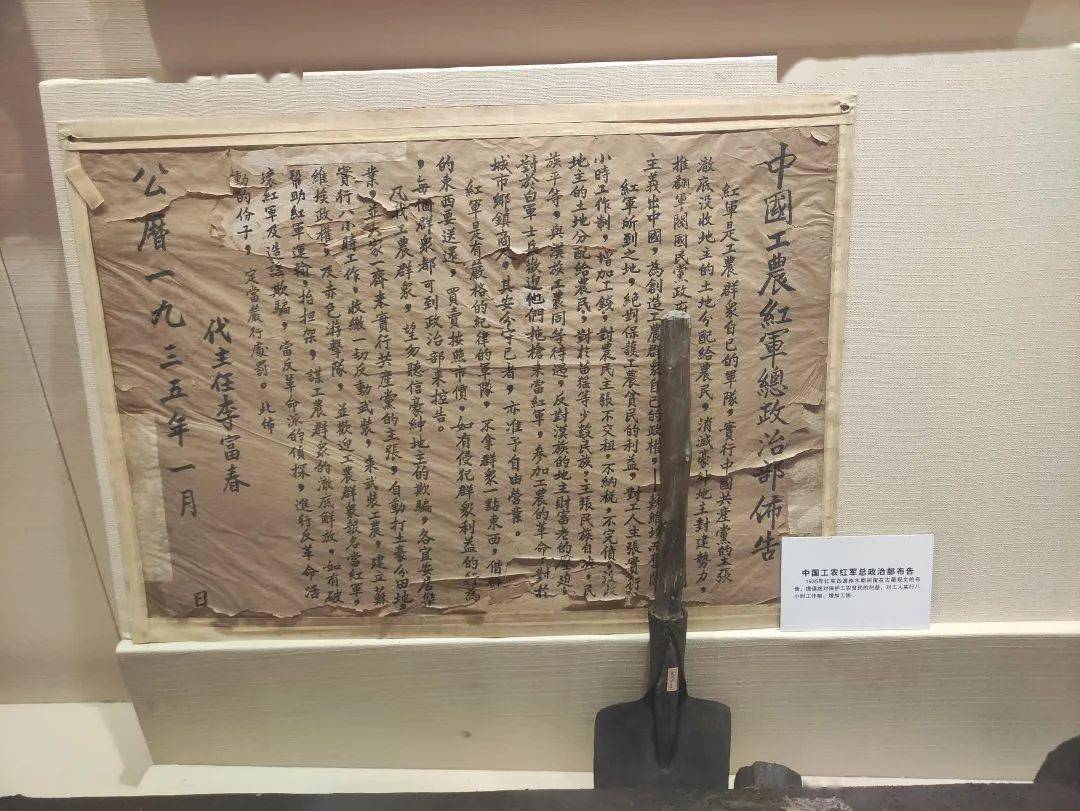 中國工農紅軍總政治部佈告
紅軍是工農群衆自己的軍隊，實行中國共產黨的主張
澈底没收地主的土地分配給農民，消滅豪紳地主封建勢力，
推翻軍閥國民黨政
主義出中國，為創造工農群衆自己的政權，
紅軍所到之地，絶對保護工農貧民的利益，對工人主張實行八
小時工作制，增加工錢，對農民主張不交租，不納税，不完債，没收
地主的土地分配給農民，對於苗猺等少數民族，主張民族自决，民
族平等，與漢族工農同等待遇，反對漢族的地主財富老的壓迫，
對於白軍士兵歡迎他們拖槍來當紅軍，參加工農的革命，對於
城市鄉鎮商人，其安分守已者，亦准予自由營業。
紅軍是有嚴格的紀律的軍隊，不拿群衆一點東西，借群衆
的東西要送還，買賣按照市價，如有侵犯群衆利益的行為
，每個群衆都可到政治部來控告。
凡我工農群衆，望勿聽信豪紳地主的欺騙，各宜安居樂
業，並大家一齊來實行共產黨的主張，自動打土豪分田地，
實行八小時工作，收繳一切反動武裝，來武裝工農，建立蘇
維埃政權，及赤色游擊隊，並歡迎工農群衆報名當紅軍，
幫助紅軍運輸，抬担架，謀工農群衆的澈底解放，如有破
壞紅軍及造謠欺騙，當反革命派的偵探，進行反革命活
動的份子，定當嚴行處罰。此佈
代主任李富春
公曆一九三五年一月 日
中国工农红军总政治部布告
1935年红军四渡赤水期间留在古蔺观文的布
告，谨遵绝对保护工农贫民的利益，对工人实行八
小时工作制，增加工钱。